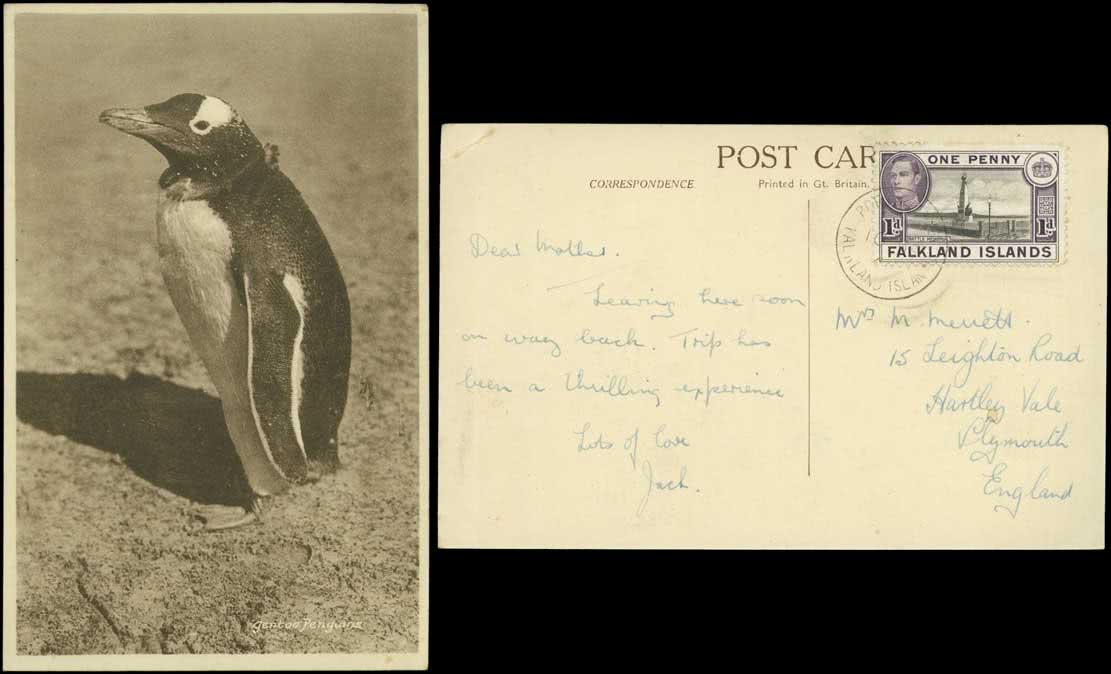 Gentoo Penguins
POST CAR
CORRESPONDENCE
Printed in Gt. Britain.
ONE PENNY
1d 1d
BATTLE MEMORIAL
FALKLAND ISLANDS
FALKLAND ISLAN
Dear Mother.
Leaving here soon
on way back. Trip has
been a thrilling experience
Lots of love
Jack.
Mrs M. Merrett.
15 Leighton Road
Hartley Vale
Plymouth
England